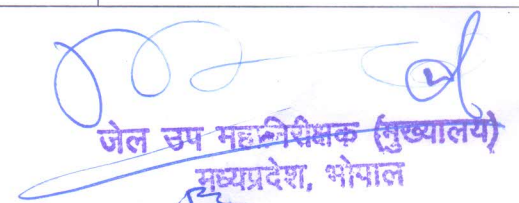 जेल उप महानिरीक्षक (मुख्यालय)
मध्यप्रदेश, भोपाल